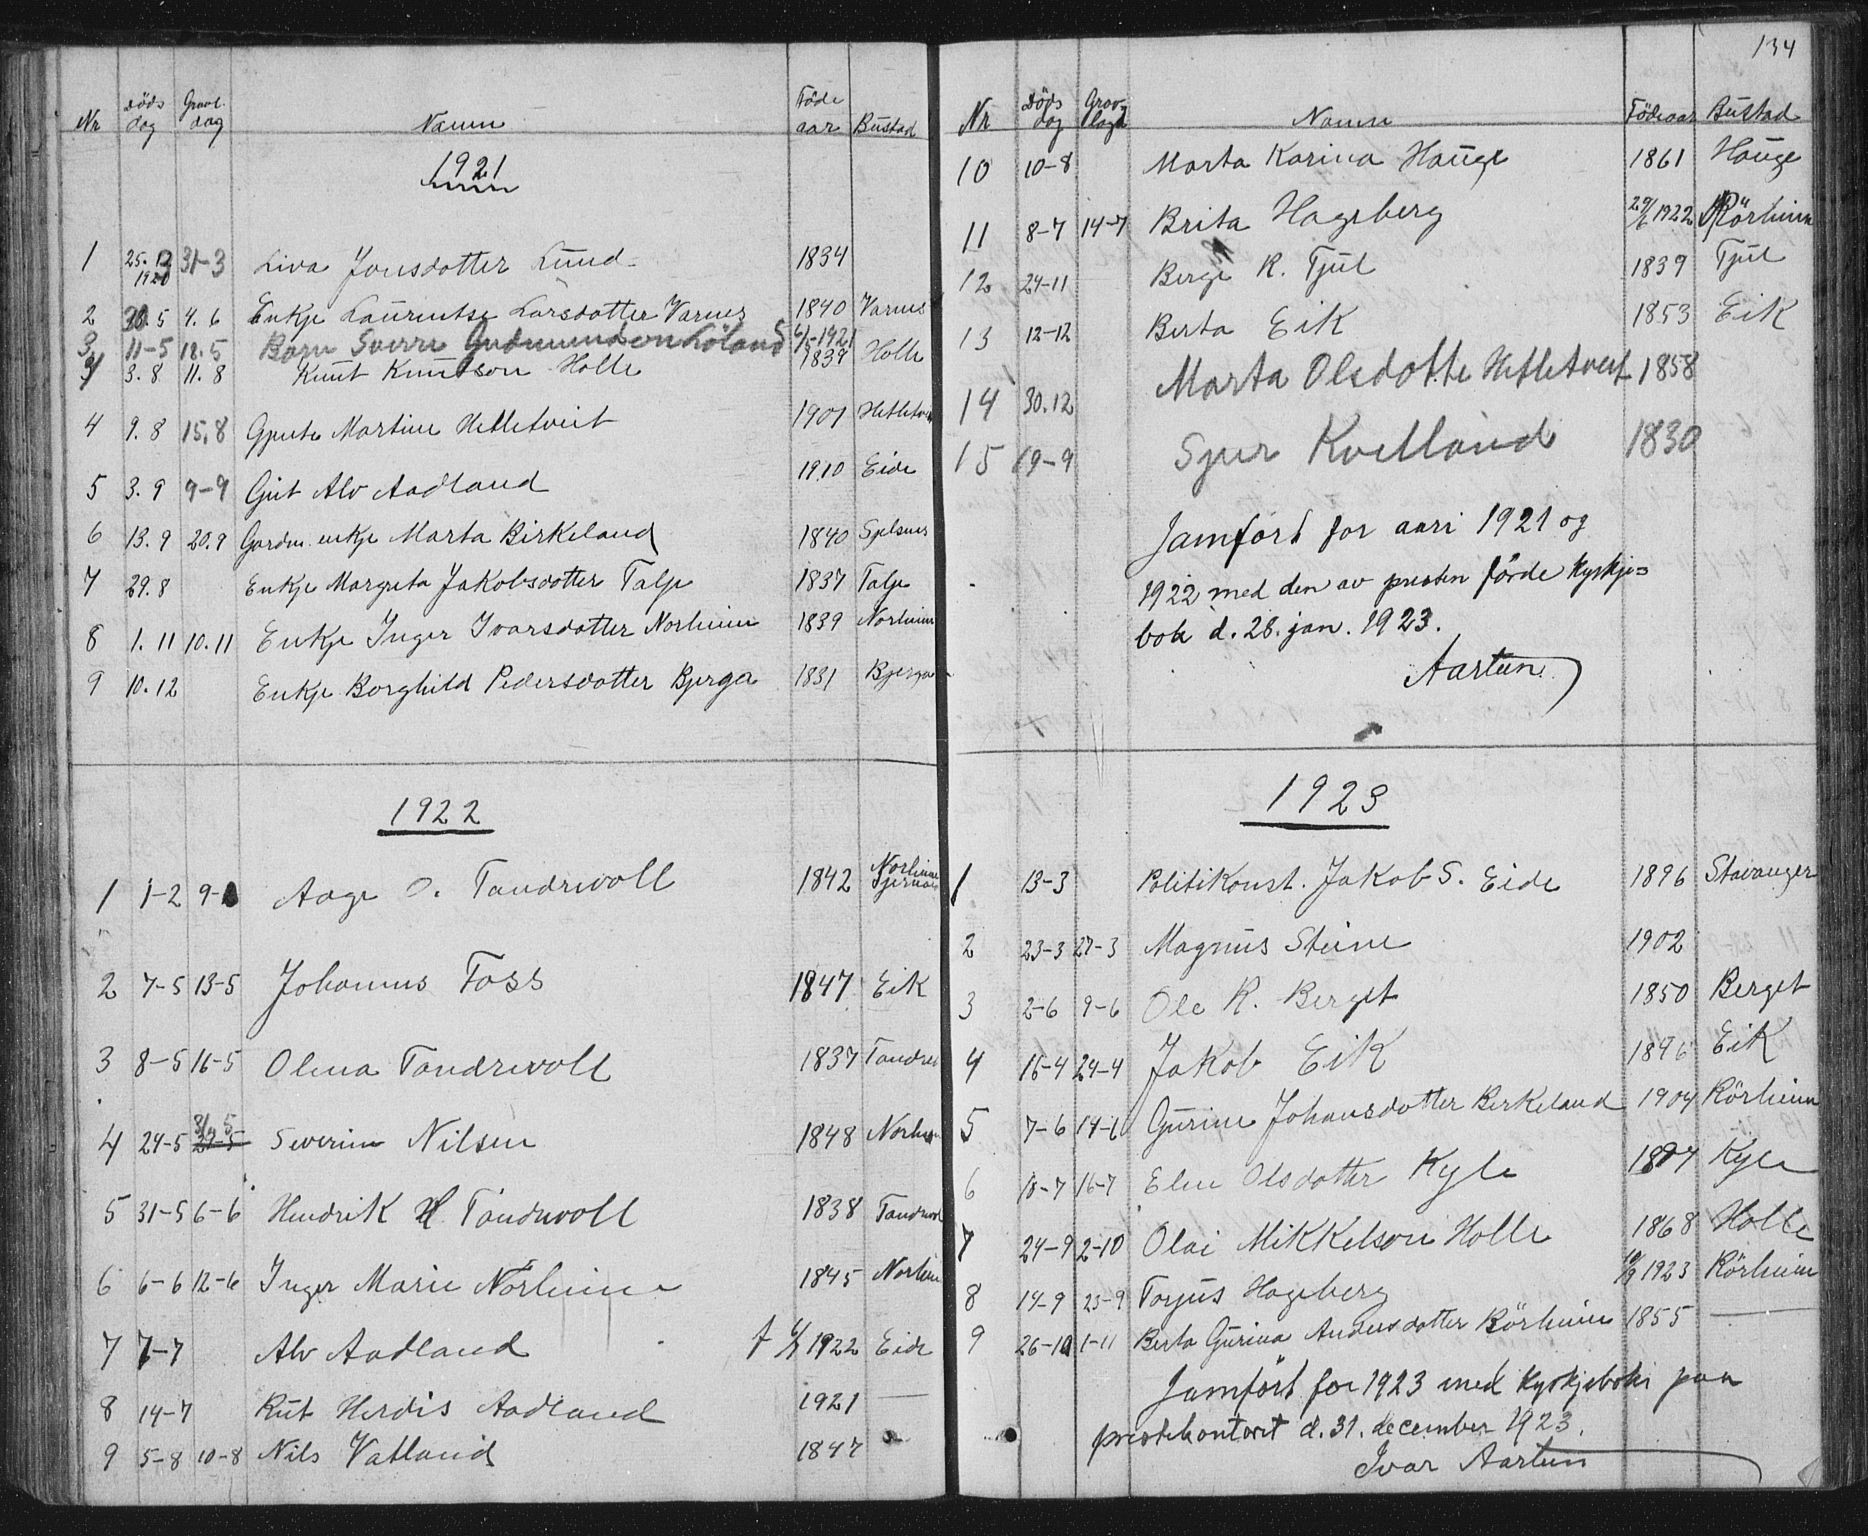 Nr Døds dag Gravl. dag Namn Føde aar Bustad
1921
1 25.12 1920 31-3 Liva Jonsdotter Lund 1834
2 30.5 4.6 Enkje Laurentse Larsdotter Varnes 1840 Varnes
3 11-5 18.5 Barn Sverre Gudmundson Løland 6/5-1921
3.8 11.8 Knut Knutson Holle 1837 Holle
4 9.8 15.8 Gjente Martine Hetletveit 1901
5 3.9 9-9 Gut Alv Aadland 1910 Eide
6 13.9 20.9 Gardm. enkje Marta Birkeland 1840
7 29.8 Enkje Margreta Jakobsdotter Talje 1837 Talje
8 1.11 10.11 Enkje Inger Ivarsdotter Norheim 1839 Norheim
9 10.12 Enkje Borghild Pedersdotter Bjerga 1831 Bjerga
1922
1 1-2 9- Aage O. Tandrevoll 1842 Norheim
2 7-5 13-5 Johannes Foss 1847 Eik
3 8-5 16-5 Olena Tandrevoll 1837
4 24-5 31/5 Severine Nilsen 1848
5 31-5 6-6 Hendrik H. Tandrevoll 1838
6 6-6 12-6 Inger Marie Norheim 1845
7 7-7 Alv Aadland 1922 Eide
8 14-7 Rut Herdis Aadland 1921 —
9 5-8 10-8 Nils Vatland 1847
134
Nr Døds dag Grav- lagd Namn Fødeaar Bustad
10 10-8 Marta Karina Hauge 1861 Hauge
11 8-7 14-7 Brita Hageberg 29/6 1922 Rörheim
12 24-11 Berge R. Tjul 1839 Tjul
13 12-12 Berta Eik 1853 Eik
14 30.12 Marta Olsdotte Hetletveit 1858
15 19-9 Sjur Kvelland 1830
Jamført for aari 1921 og
1922 med den av presten førde kyrkje=
bok d. 28. jan. 1923.
Aartun
1923
1 13-3 Politikonst. Jakob S. Eide 1896 Stavanger
2 23-3 27-3 Magnus Steine 1902
3 2-6 9-6 Ole R. Berget 1850 Berget
4 15-4 24-4 Jakob Eik 1896 Eik
5 7-6 14-6 Gurine Johansdotter Berkeland 1904 Rörheim
6 10-7 16-7 Elen Olsdotter Kyle Kyle
7 24-9 2-10 Olai Mikkelson Holle 1868 Holle
8 14-9 23-9 Torjus Hageberg 1923 Rörheim
9 26-10 1-11 Berta Gurina Andersdotter Rörheim 1855 —
Jamført for 1923 med kyrkjeboki paa
prestekontoret d. 31. december 1923.
Ivar Aartun